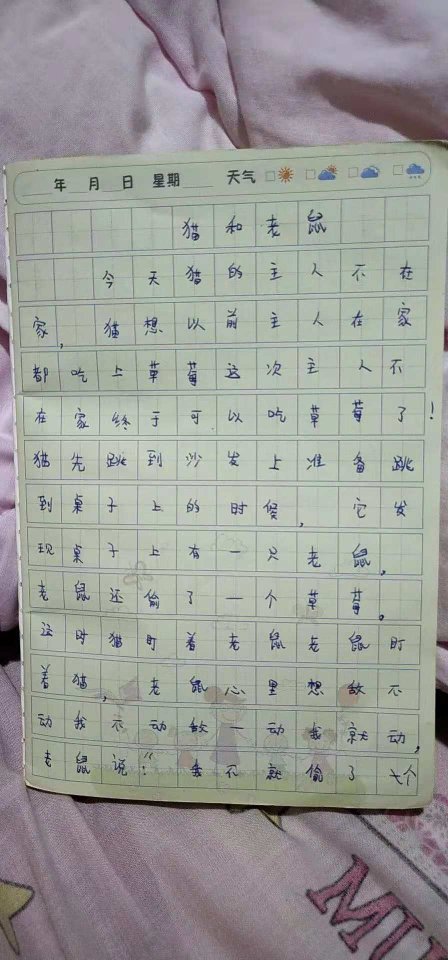 年 月 日 星期 天气
猫和老鼠
今天猫的主人不在
家,猫想以前主人在家
都吃上草莓这次主人不
在家终于可以吃草莓了!
猫先跳到沙发上准备跳
到桌子上的时候,它发
现桌子上有一只老鼠,
老鼠还偷了一个草莓。
这时猫盯着老鼠老鼠盯
着猫,老鼠心里想敌不
动我不动敌一动我就动,
老鼠说:“我不就偷了个
MI